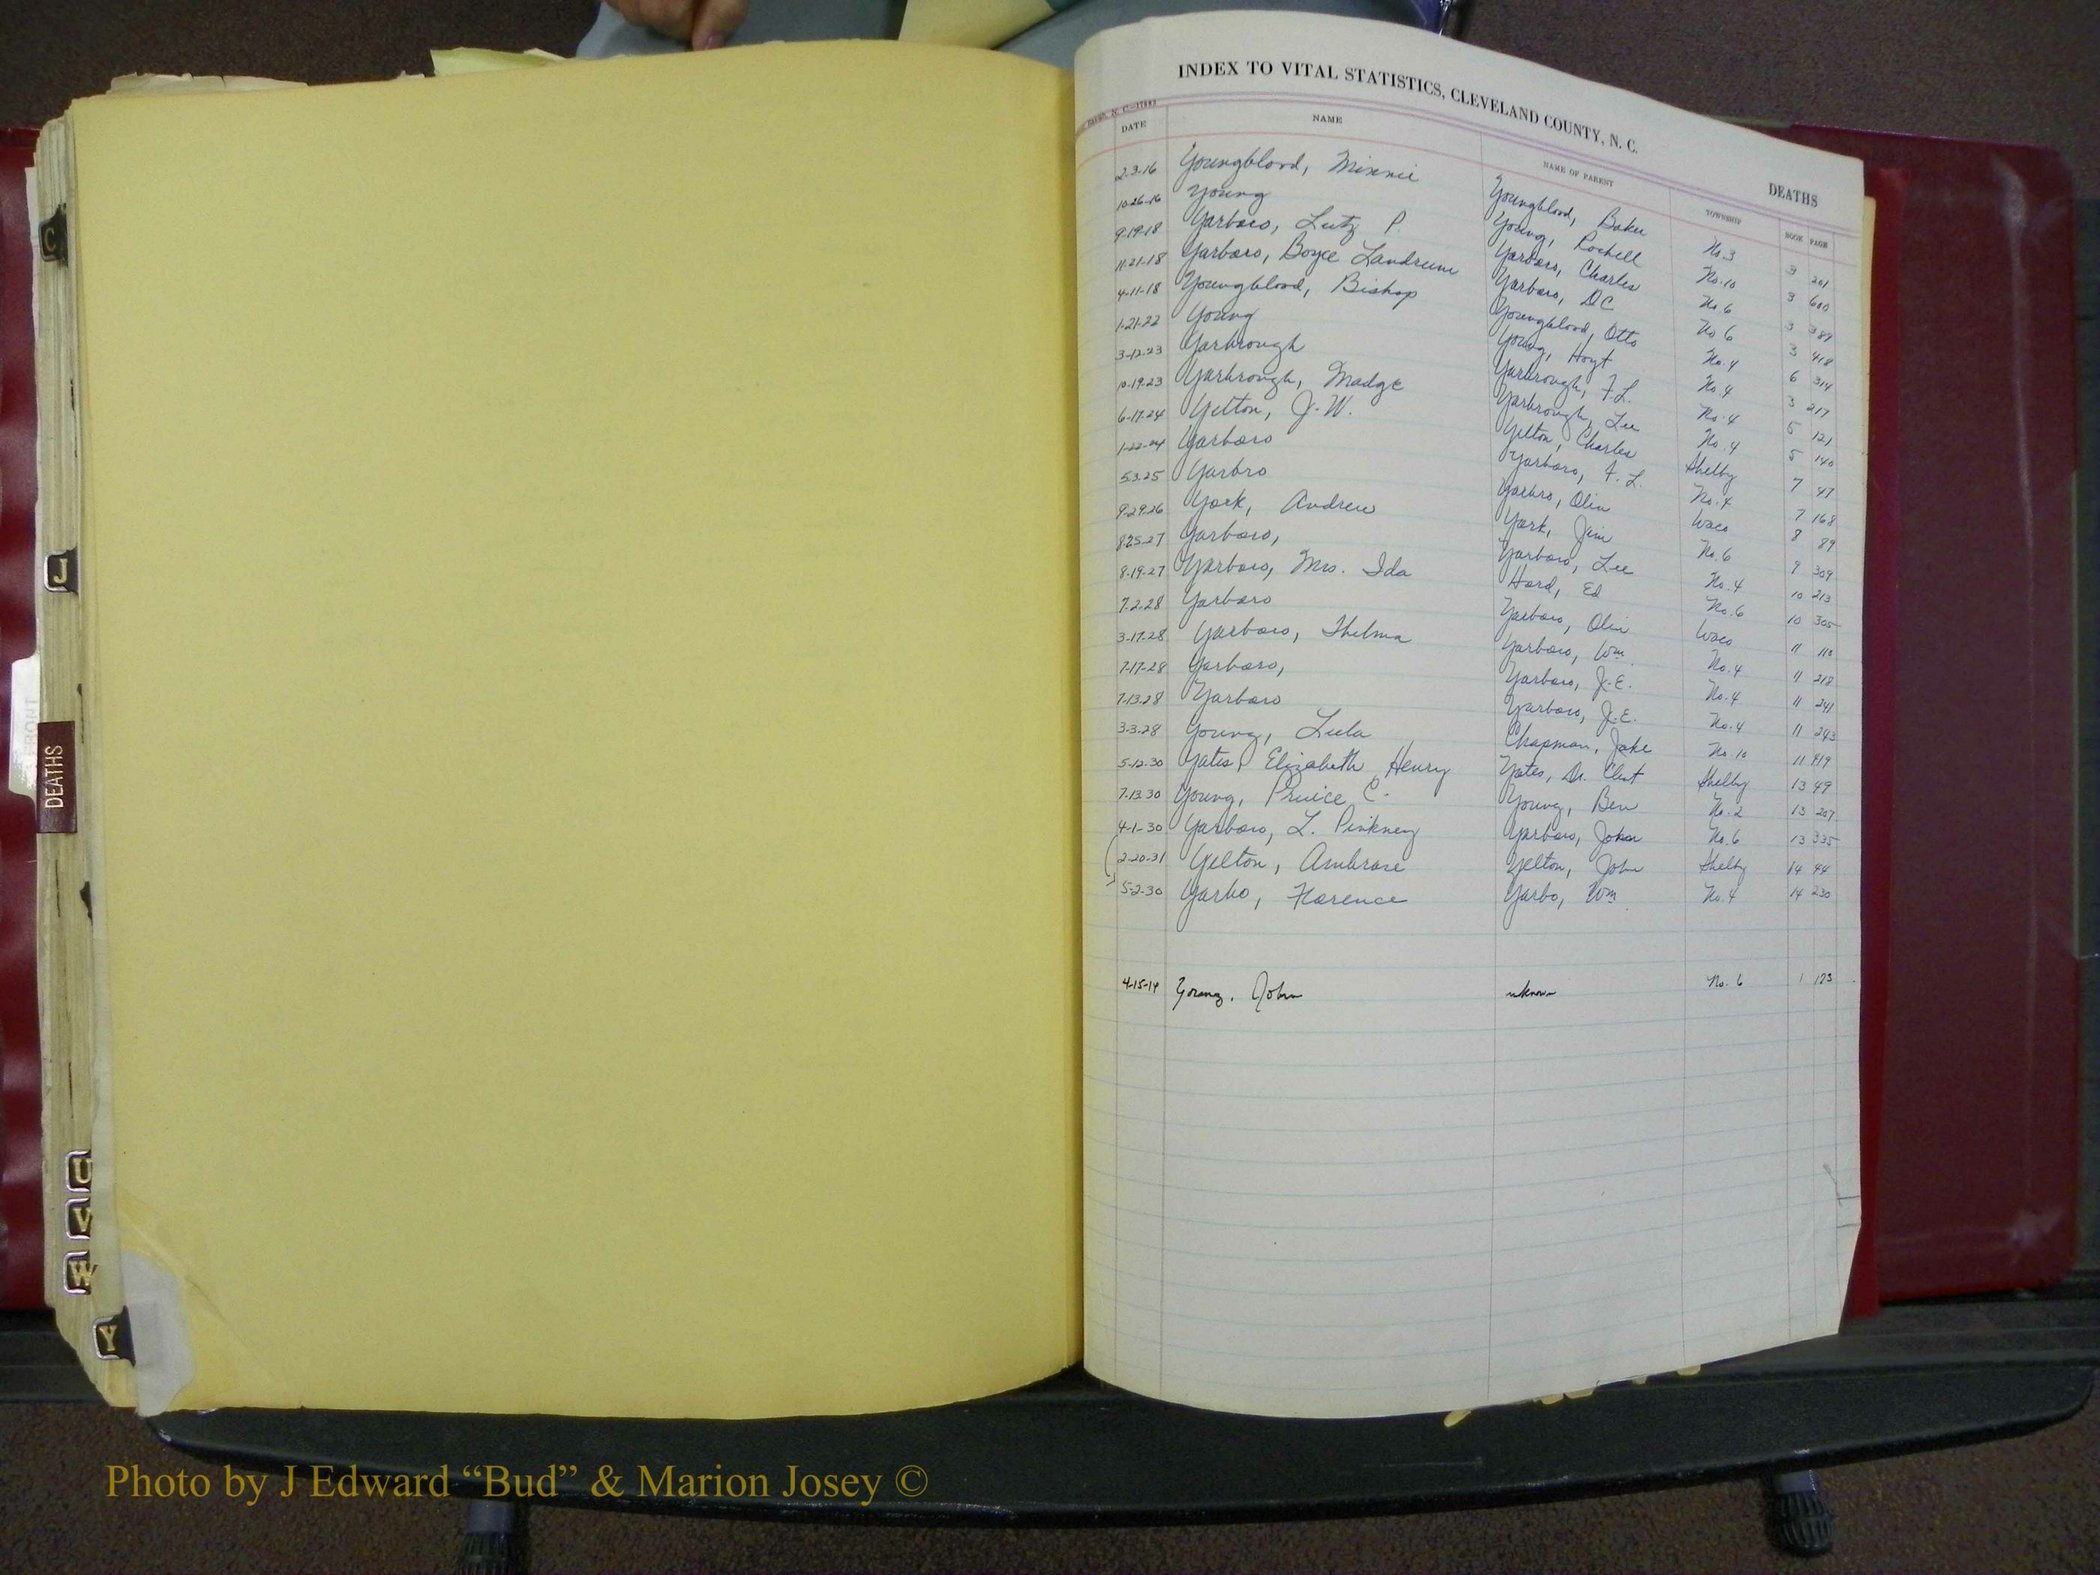 INDEX TO VITAL STATISTICS, CLEVELAND COUNTY, N. C.
DEATHS
DATE NAME NAME OF PARENT TOWNSHIP BOOK PAGE
2-3-16 Youngblood, Minnie Youngblood, Baker No. 3 3 201
10-26-16 Young Young, Rochell No. 10 3 600
9-19-18 Yarboro, Lutz P. Yarboro, Charles No 6 3 389
11-21-18 Yarboro, Boyce Landrum Yarboro, DC No 6 3 418
4-11-18 Youngblood, Bishop Youngblood, Otto No. 4 6 314
1-21-22 Young Young, Hoyt No. 4 3 217
3-12-23 Yarbrough Yarbrough, F.L. No. 4 5 121
10-19-23 Yarbrough, Madge Yarbrough, Lee No. 4 5 140
6-17-24 Yelton, J. W. Yelton, Charles Shelby 7 47
1-22-24 Yarboro Yarboro, F. L. No. 4 7 168
5-3-25 Yarbro Yarbro, Olin Waco 8 89
9-29-26 York, Andrew York, Jim No. 6 9 309
8-25-27 Yarboro, Yarboro, Lee No. 4 10 213
8-19-27 Yarboro, Mrs. Ida Hord, Ed No. 6 10 305
7-2-28 Yarboro Yarboro, Olin Waco 11 110
3-17-28 Yarboro, Thelma Yarboro, Wm. No. 4 11 218
7-17-28 Yarboro, Yarboro, J. E. No. 4 11 241
7-13-28 Yarboro Yarboro, J. E. No. 4 11 243
3-3-28 Young, Lula Chapman, Jake No. 10 11 419
5-12-30 Yates, Elizabeth Henry Yates, Dr. Clint Shelby 13 49
7-13-30 Young, C. Young, Ben No. 2 13 207
4-1-30 Yarboro, L. Pinkney Yarboro, John No. 6 13 335
2-20-31 Yelton, Ambrose Yelton, John Shelby 14 94
5-2-30 Yarbo, Florence Yarbo, Wm. No. 4 14 230
4-15-14 Young, John unknown No. 6 1 173
C
J
DEATHS
U
V
W
Y
Photo by J Edward “Bud” & Marion Josey ©